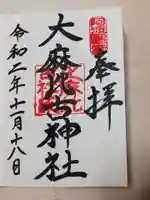 奉拝
大麻比古神社
令和二年十一月十八日